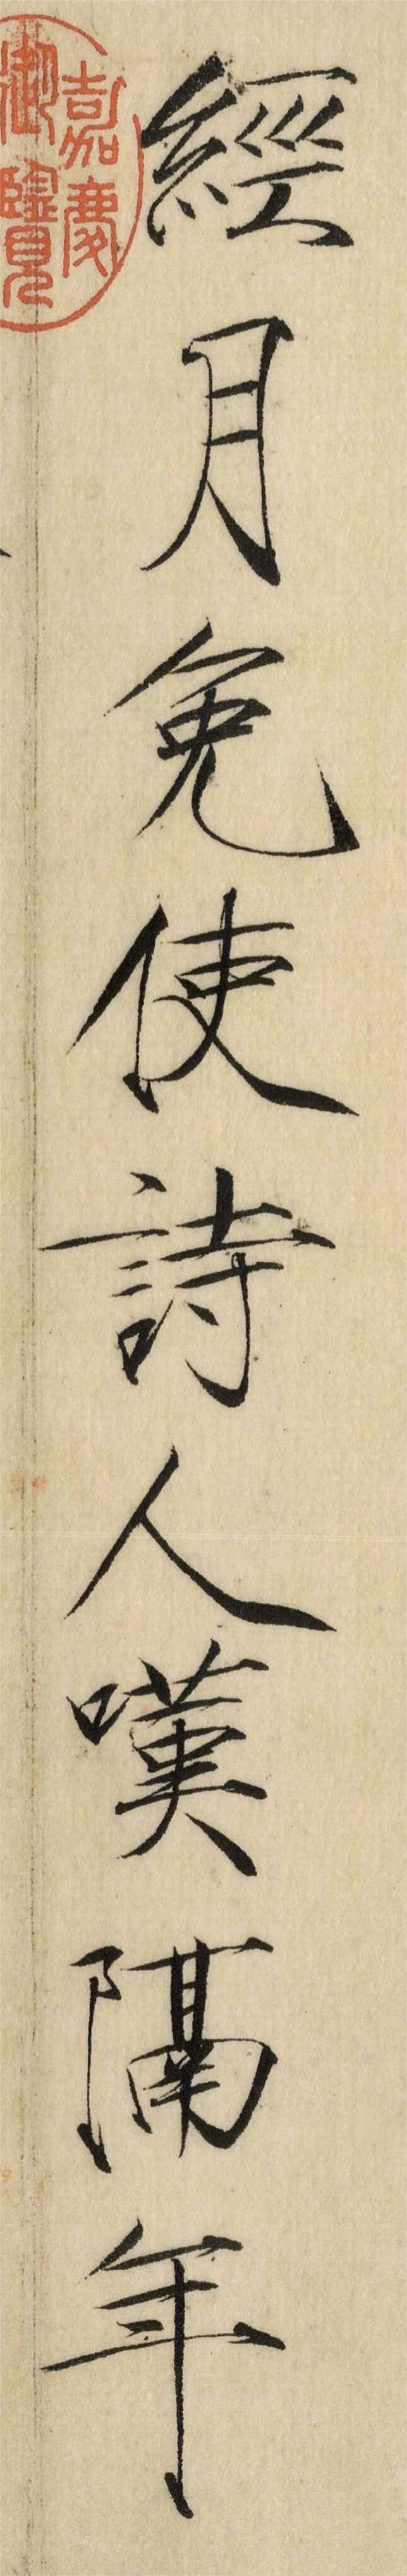 經月免使詩人嘆隔年
嘉慶御覽